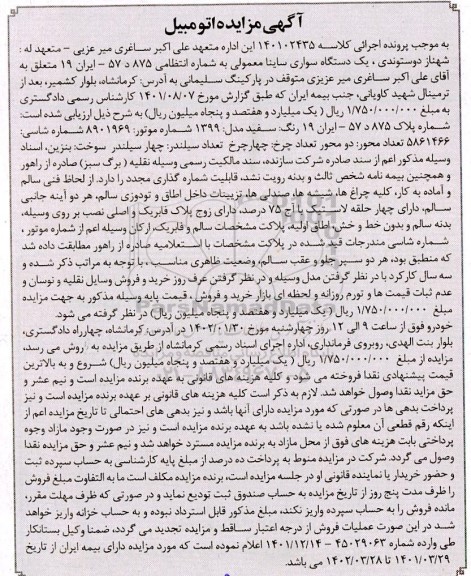 آگهی مزایده اتومبیل
به موجب پرونده اجرائی کلاسه ۱۴۰۱۰۲۴۳۵ این اداره متعهد علی اکبر ساغری میر عزیی - متعهد له :
شهناز دوستوندی ، یک دستگاه سواری ساینا معمولی به شماره انتظامی ۸۷۵ د ۵۷ - ایران ۱۹ متعلق به
آقای علی اکبر ساغری میر عزیزی متوقف در پارکینگ سلیمانی به آدرس: کرمانشاه، بلوار کشمیر، بعد از
ترمینال شهید کاویانی، جنب بیمه ایران که طبق گزارش مورخ ۱۴۰۱/۰۸/۰۷ کارشناس رسمی دادگستری
به مبلغ ۱/۷۵۰/۰۰۰/۰۰۰ ریال ( یک میلیارد و هفتصد و پنجاه میلیون ریال) به شرح ذیل ارزیابی شده است:
شماره پلاک ۸۷۵ د ۵۷ - ایران ۱۹ رنگ: سفید مدل: ۱۳۹۹ شماره موتور: ۸۹۰۱۹۶۹ شماره شاسی:
۵۸۶۱۴۶۶ تعداد محور: دو محور تعداد چرخ: چهارچرخ تعداد سیلندر: چهار سیلندر سوخت: بنزین، اسناد
وسیله مذکور اعم از سند صادره شرکت سازنده، سند مالکیت رسمی وسیله نقلیه ( برگ سبز) صادره از راهور
و همچنین بیمه نامه شخص ثالث و بدنه رویت نشد، قابلیت شماره گذاری مجدد را دارد. از لحاظ فنی سالم
و آماده به کار، کلیه چراغ ها، شیشه ها، صندلی ها، تزیینات داخل اطاق و تودوزی سالم، هر دو آینه جانبی
سالم، دارای چهار حلقه لاستیک با آج ۷۵ درصد، دارای زوج پلاک فابریک و اصلی نصب بر روی وسیله،
بدنه سالم و بدون خط و خش، اطاق اولیه، پلاکت مشخصات سالم و فابریک، ارکان وسیله اعم از شماره موتور ،
شماره شاسی مندرجات قید شده در پلاکت مشخصات با استعلامیه صادره از راهور مطابقت داده شد
که منطبق بود، هر دو سپر جلو و عقب سالم، وضعیت ظاهری مناسب، با توجه به مراتب ذکر شده و
سه سال کارکرد با در نظر گرفتن مدل وسیله و در نظر گرفتن عرف روز خرید و فروش وسایل نقلیه و نوسان و
عدم ثبات قیمت ها و تورم روزانه و لحظه ای بازار خرید و فروش ، قیمت پایه وسیله مذکور به جهت مزایده
مبلغ ۱/۷۵۰/۰۰۰/۰۰۰ ریال ( یک میلیارد و هفتصد و پنجاه میلیون ریال) در نظر گرفته می شود.
خودرو فوق از ساعت ۹ الی ۱۲ روز چهارشنبه مورخ ۱۴۰۲/۰۱/۳۰ در آدرس: کرمانشاه، چهارراه دادگستری،
بلوار بنت الهدی، روبروی فرمانداری، اداره اجرای اسناد رسمی کرمانشاه از طریق مزایده به فروش می رسد،
مزایده از مبلغ ۱/۷۵۰/۰۰۰/۰۰۰ ریال ( یک میلیارد و هفتصد و پنجاه میلیون ریال) شروع و به بالاترین
قیمت پیشنهادی نقدا فروخته می شود و کلیه هزینه های قانونی به عهده برنده مزایده است و نیم عشر و
حق مزاید نقدا وصول خواهد شد. لازم به ذکر است کلیه هزینه های قانونی بر عهده برنده مزایده است و نیز
پرداخت بدهی ها در صورتی که مورد مزایده دارای آنها باشد و نیز بدهی های احتمالی تا تاریخ مزایده اعم از
اینکه رقم قطعی آن معلوم شده یا نشده باشد به عهده برنده مزایده است و نیز در صورت وجود مازاد وجوه
پرداختی بابت هزینه های فوق از محل مازاد به برنده مزایده مسترد خواهد شد و نیم عشر و حق مزایده نقدا
وصول می گردد. شرکت در مزایده منوط به پرداخت ده درصد از مبلغ پایه کارشناسی به حساب سپرده ثبت
و حضور خریدار یا نماینده قانونی او در جلسه مزایده است، برنده مزایده مکلف است ما به التفاوت مبلغ فروش
را ظرف مدت پنج روز از تاریخ مزایده به حساب صندوق ثبت تودیع نماید و در صورتی که ظرف مهلت مقرر،
مانده فروش را به حساب سپرده واریز نکند، مبلغ مذکور قابل استرداد نبوده و به حساب خزانه واریز خواهد
شد در این صورت عملیات فروش از درجه اعتبار ساقط و مزایده تجدید می گردد، ضمنا وکیل بستانکار
طی وارده شماره ۴۵۰۲۹۰۶۳ - ۱۴۰۱/۱۲/۱۴ اعلام نموده است که مورد مزایده دارای بیمه ایران از تاریخ
۱۴۰۱/۰۳/۲۹ تا ۱۴۰۲/۰۳/۲۸ می باشد.